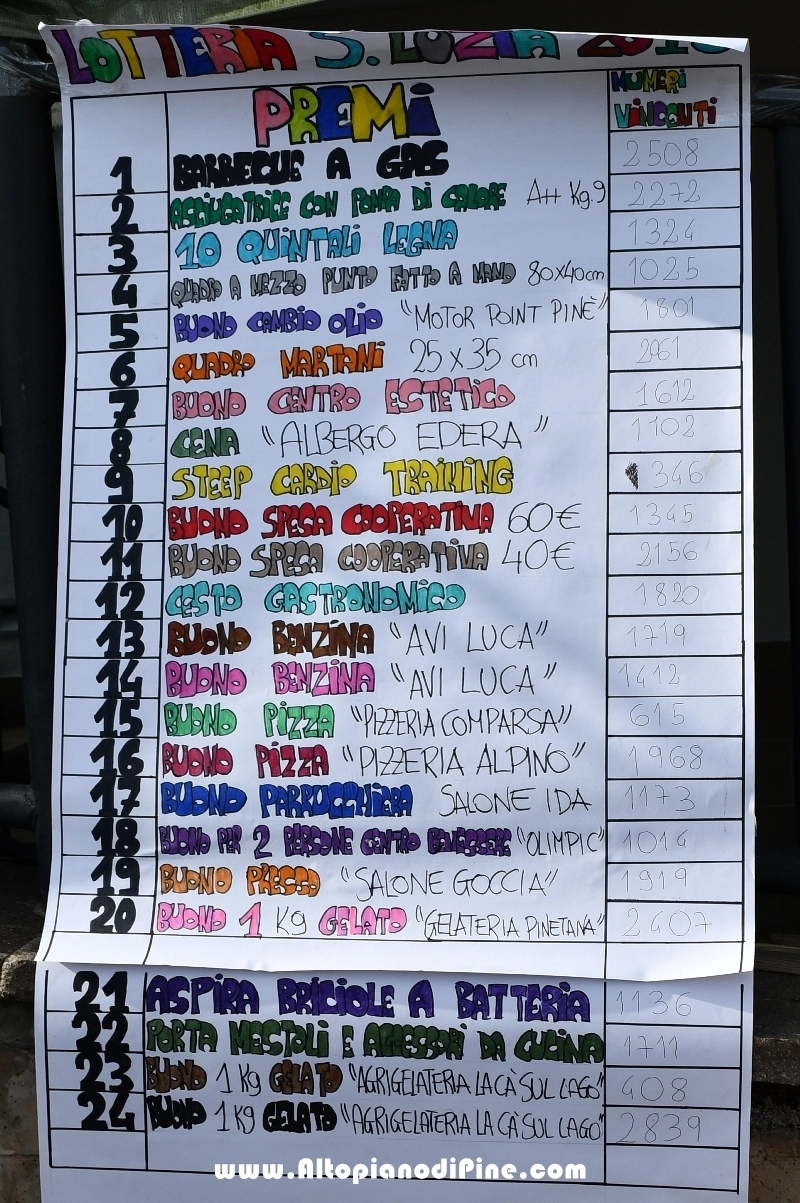 LOTTERIA S. LUZIA
PREMI NUMERI VINCENTI
1 BARBECUE A GAS 2508
2 ASCIUGATRICE CON POMPA DI CALORE A++ Kg.9 2272
3 10 QUINTALI LEGNA 1324
4 QUADRO A MEZZO PUNTO FATTO A MANO 80x40cm 1025
5 BUONO CAMBIO OLIO "MOTOR POINT PINÈ" 1801
6 QUADRO MARTANI 25x35 cm 2961
7 BUONO CENTRO ESTETICO 1612
8 CENA "ALBERGO EDERA" 1102
9 STEEP CARDIO TRAINING 346
10 BUONO SPESA COOPERATIVA 60€ 1345
11 BUONO SPESA COOPERATIVA 40€ 2156
12 CESTO GASTRONOMICO 1820
13 BUONO BENZINA "AVI LUCA" 1719
14 BUONO BENZINA "AVI LUCA" 1412
15 BUONO PIZZA "PIZZERIA COMPARSA" 615
16 BUONO PIZZA "PIZZERIA ALPINO" 1968
17 BUONO PARRUCCHIERA SALONE IDA 1173
18 BUONO PER 2 PERSONE CENTRO BENESSERE "OLIMPIC" 1014
19 BUONO PRESSO "SALONE GOCCIA" 1919
20 BUONO 1 Kg GELATO "GELATERIA PINETANA" 2407
21 ASPIRA BRICIOLE A BATTERIA 1136
22 PORTA MESTOLI E ACCESSORI DA CUCINA 1711
23 BUONO 1 Kg GELATO "AGRIGELATERIA LA CÀ SUL LAGO" 408
24 BUONO 1 Kg GELATO "AGRIGELATERIA LA CÀ SUL LAGO" 2839
www.AltopianodiPine.com